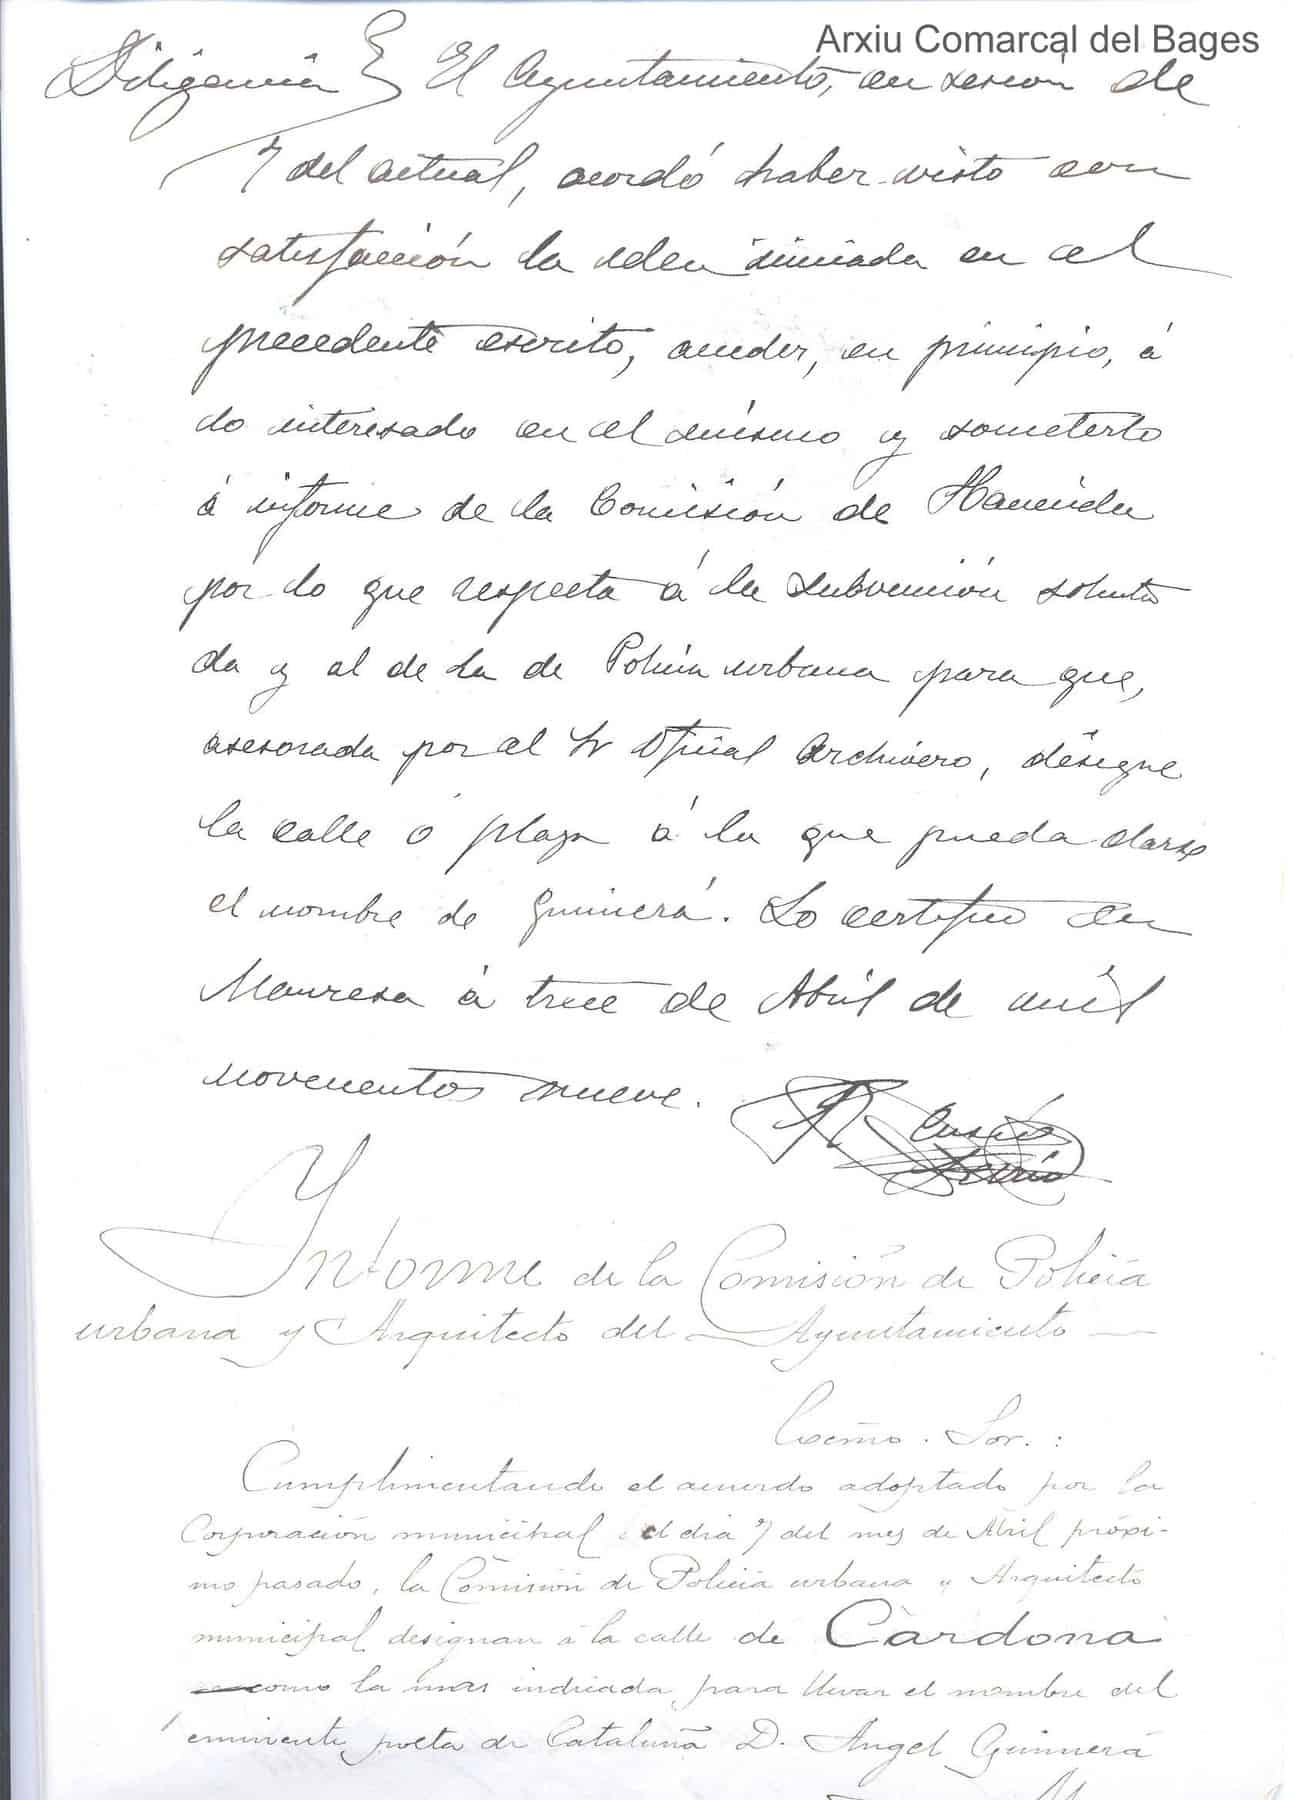 Arxiu Comarcal del Bages
Diligencia El Ayuntamiento, en sesión de
7 del actual, acordó haber visto con
satisfacción la idea iniciada en el
precedente escrito, acceder, en principio, á
lo interesado en el mismo y someterlo
á informe de la Comisión de Hacienda
por lo que respecta á la subvención solicita
da y al de la de Policía urbana para que,
asesorada por el Sr Oficial Archivero, designe
la calle ó plaza á la que pueda darse
el nombre de Guimerá. Lo certifico en
Manresa á trece de Abril de mil
novecientos nueve.
Informe de la Comisión de Policía
urbana y Arquitecto del Ayuntamiento
Excmo. Sor.:
Cumplimentando el acuerdo adoptado por la
Corporación municipal el dia 7 del mes de Abril próxi-
mo pasado, la Comisión de Policía urbana y Arquitecto
municipal designan á la calle de Cardona
como la mas indicada para llevar el nombre del
eminente poeta de Cataluña D. Angel Guimerá